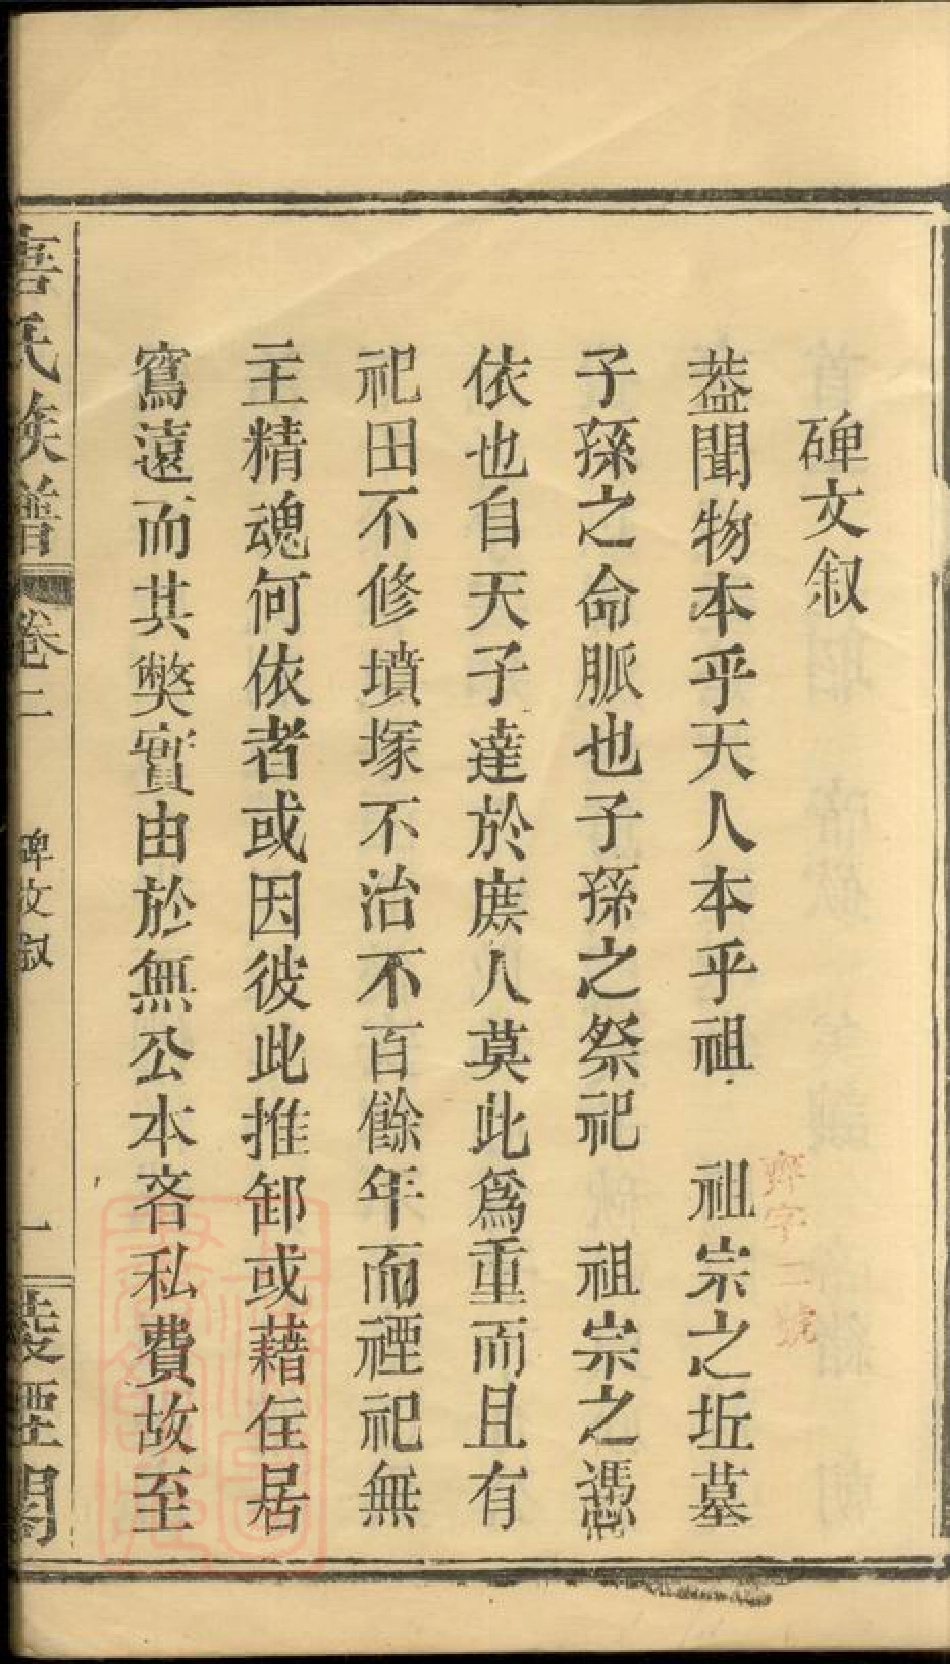 碑文叙
葢聞物本乎天人本乎祖　祖宗之坵墓
子孫之命脈也子孫之祭祀　祖宗之憑
依也自天子達於庶人莫此爲重而且有
祀田不修墳塚不治不百餘年而禋祀無
主精魂何依者或因彼此推卸或藉住居
窵遠而其獘實由於無公本吝私費故至
氏族譜
卷二
碑文叙
一